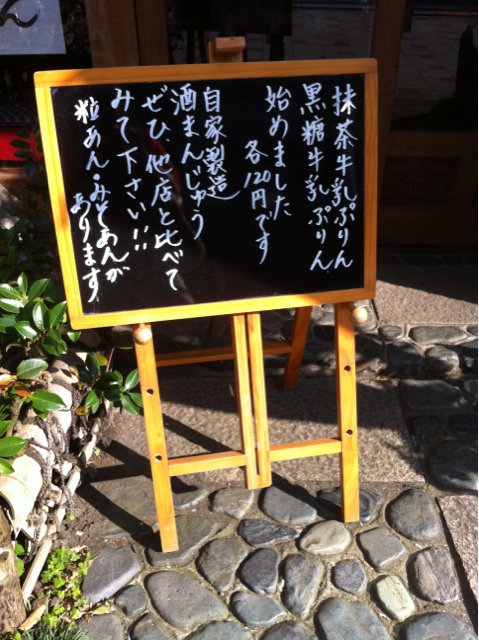 抹茶牛乳ぷりん
黒糖牛乳ぷりん
始めました
各120円です
自家製造
酒まんじゅう
ぜひ、他店と比べて
みて下さい!!
粒あん・みそあんが
あります
ん